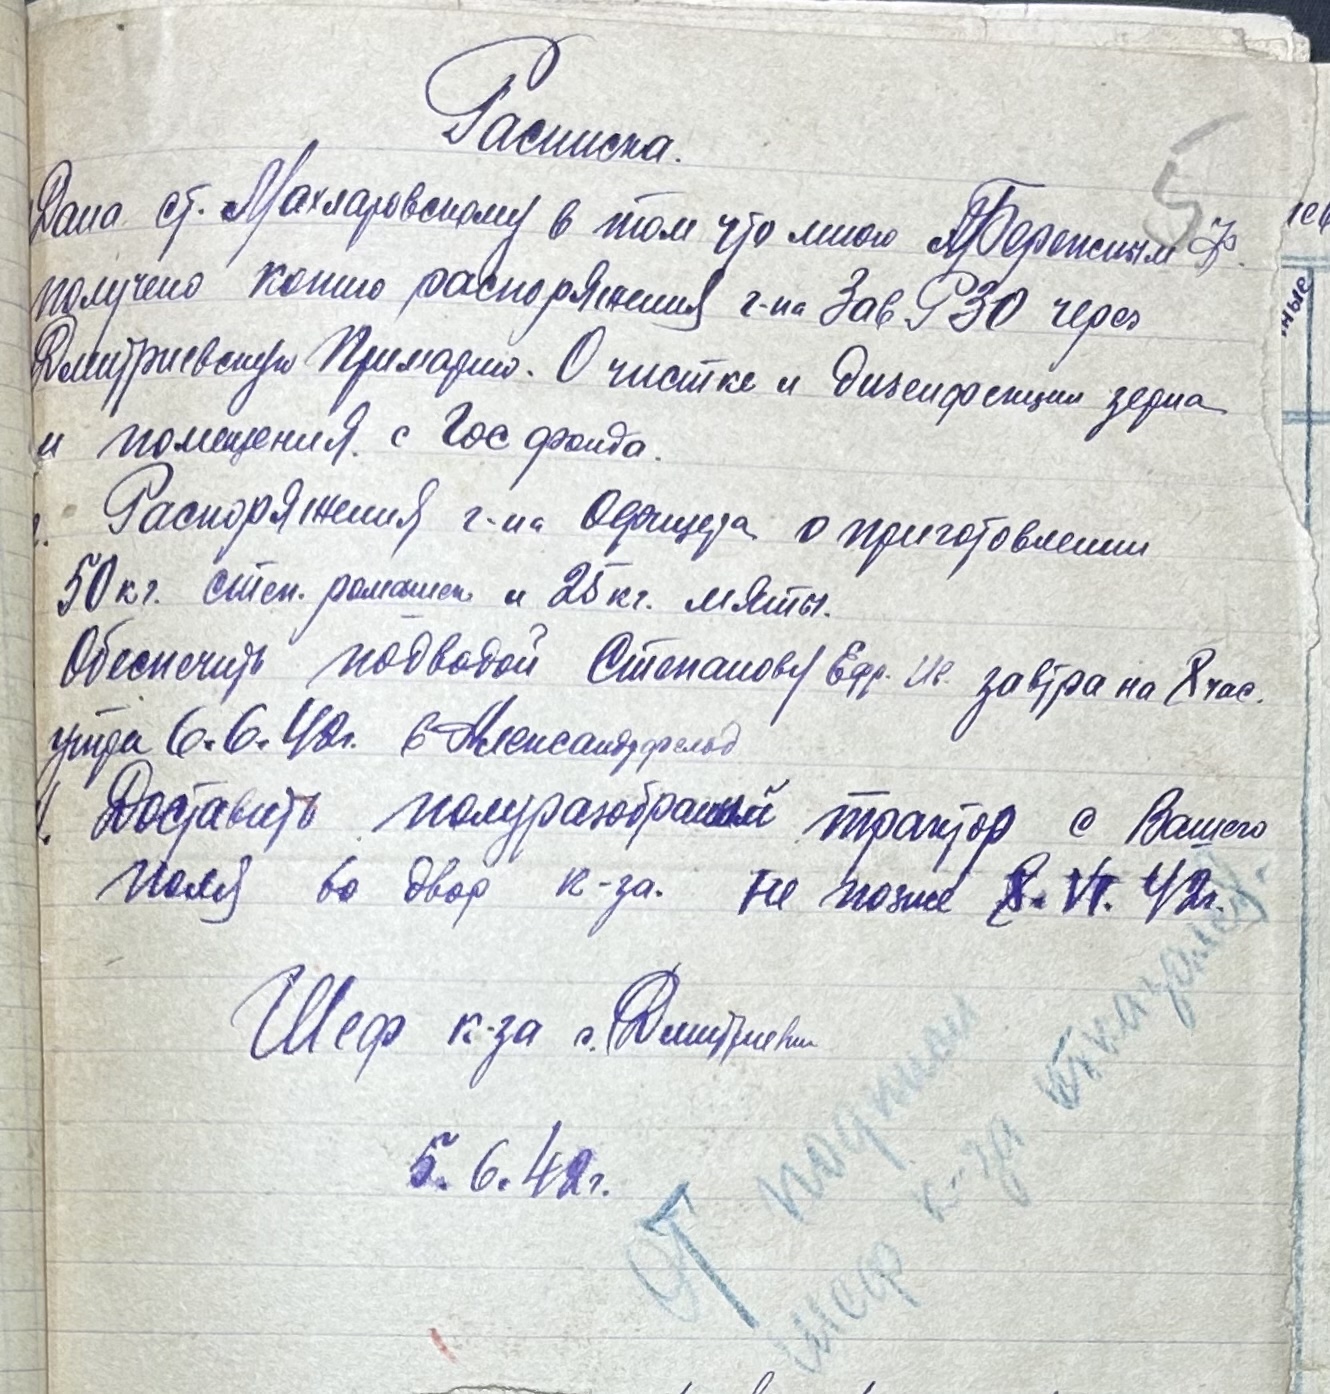 Расписка.
5
Дана ст. Махларовскому в том что мною Бережным Ф.
получено копию распоряжения г-на Зав РЗО через
Дмитриевскую Примарию. О чистке и дизенфекции зерна
и помещения с Гос фонда.
Распоряжения г-на Офицера о приготовлении
50 кг. степ. ромашк. и 25 кг. мяты.
Обеспечить подводой Степанову Ефр. Ив. завтра на 8 час.
утра 6.6.42г. в Александрфельд
Доставить полуразобраный трактор с Вашего
поля во двор к-за. не позже 8. VI. 42г.
Шеф к-за с. Дмитриевки
5.6.42г.
От подписи
шеф к-за отказался.